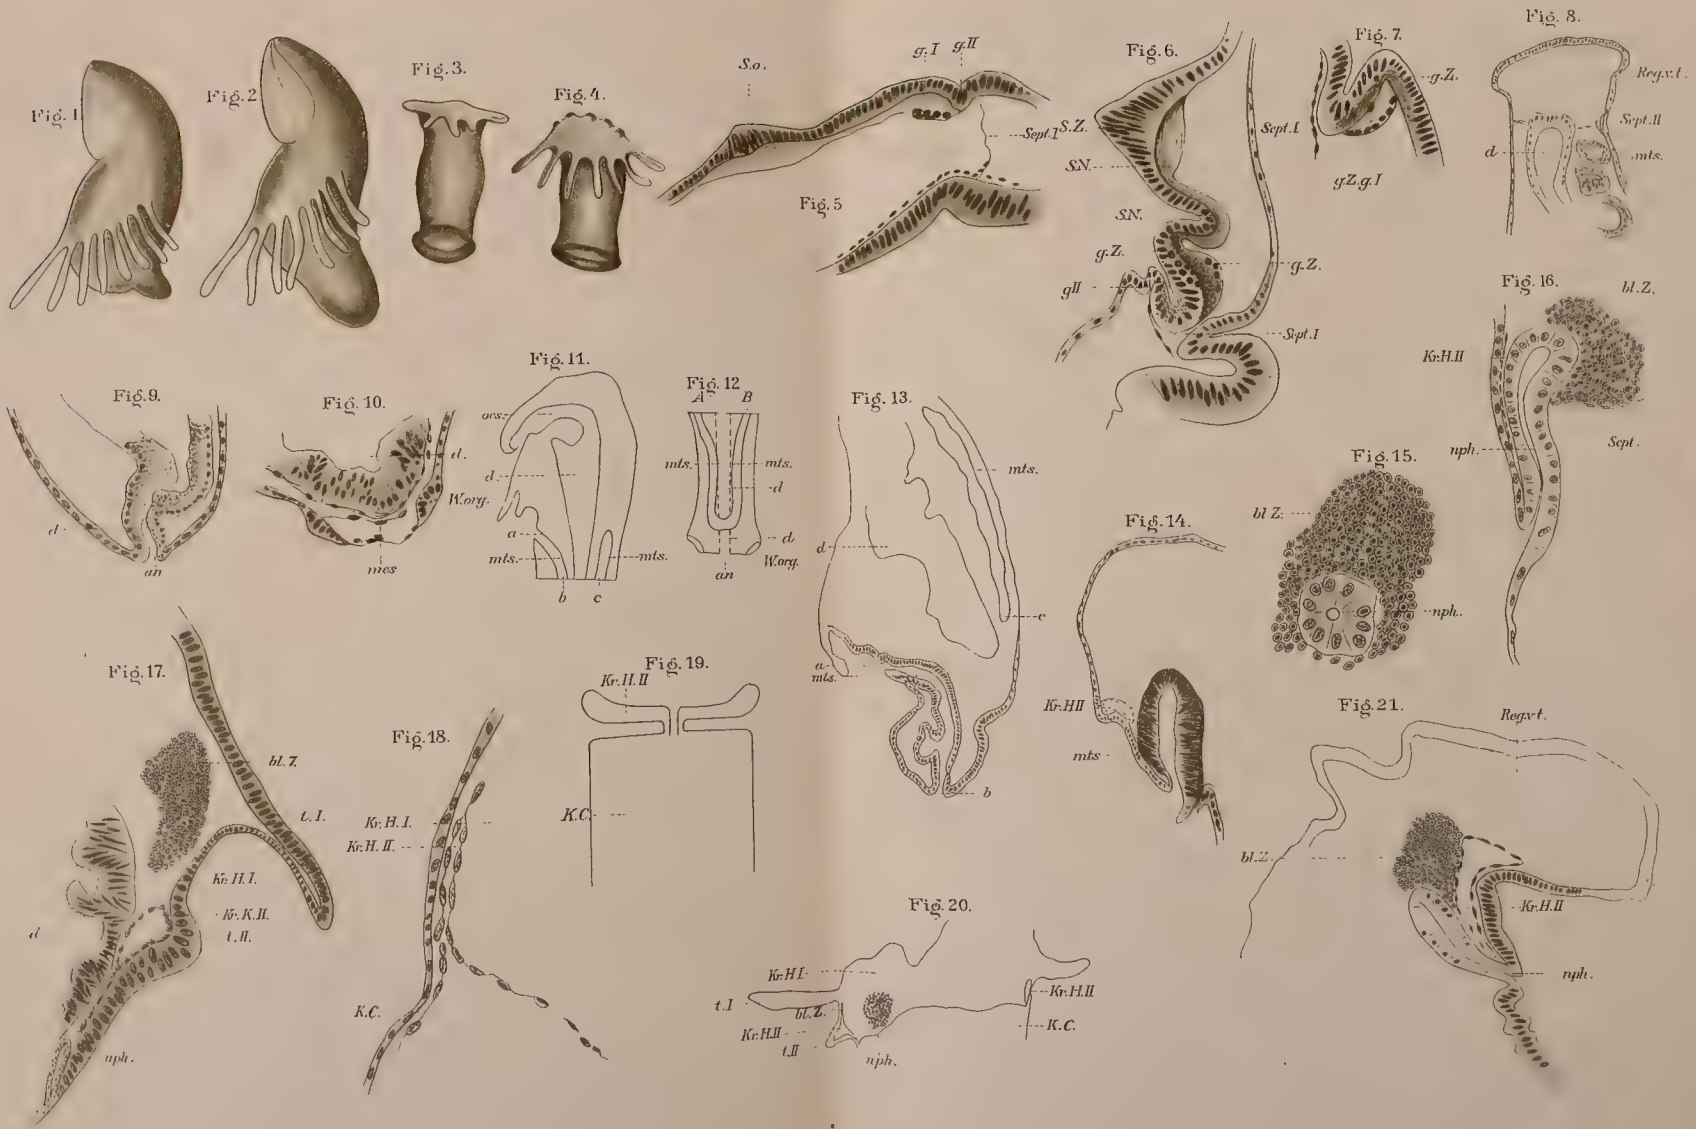 Fig. 1.
Fig. 2
Fig. 3.
Fig. 4.
S.o.
g. I
g. II
Sept. I
Fig. 5
Fig. 6.
S.Z.
S.N.
S.N.
g.Z.
g II
Sept. I
g.Z.
Sept. I
Fig. 7.
g.Z.
g.Z.g.I
Fig. 8.
Reg.v.t.
Sept. II
d
mts.
Fig. 9.
d
an
Fig. 10.
d.
W.org.
mes
Fig. 11.
oes.
d.
a
mts.
mts.
b
c
Fig. 12
A
B
mts.
mts.
d
d
W.org.
an
Fig. 13.
mts.
d
c
a
mts.
b
Fig. 14.
Kr.H II
mts
Fig. 15.
bl Z.
nph.
Fig. 16.
bl.Z.
Kr.H.II
nph.
Sept.
Fig. 17.
bl. Z.
t. I.
Kr. H. I.
Kr. K. II.
t. II.
d
nph.
Fig. 18.
Kr. H. I.
Kr. H. II.
K.C.
Fig. 19.
Kr. H. II
K.C.
Fig. 20.
Kr. H I
t. I
bl. Z.
Kr. H. II
t. II
nph.
Kr. H. II
K.C.
Fig. 21.
Reg.v.t.
bl. Z.
Kr. H. II
nph.